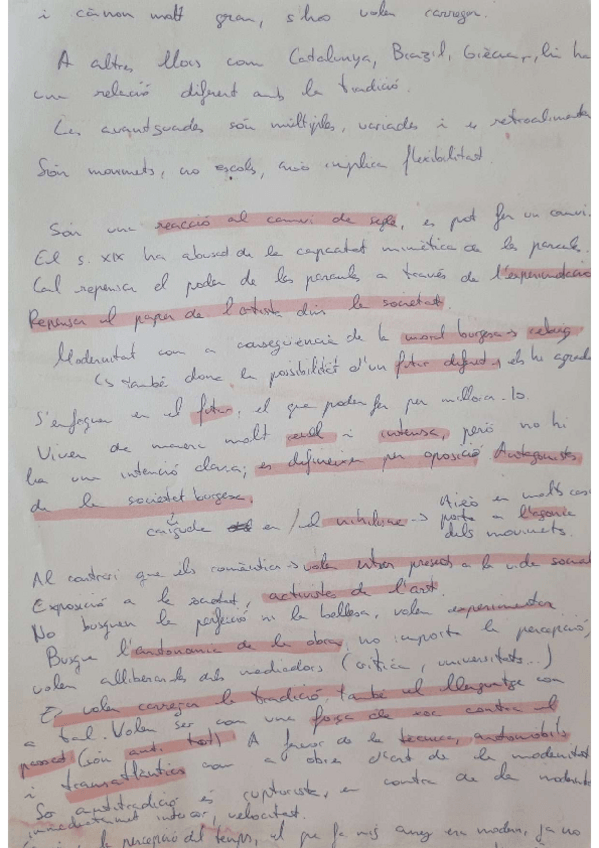 i cànon molt gran, s'hos volen carregar.
A altres llocs com Catalunya, Brazil, Grècia, hi ha
una relació diferent amb la tradició.
Les avantguades són múltiples, variades i es retroalimenten
Són moviments, no escols, això implica flexibilitat
Són una reacció al canvi de segle, es pot fer un canvi.
El s. XIX ha abusat de la capacitat mimètica de la paraula.
Cal repensar el poder de les paraules a través de l'experimentació
Repensar el paper de l'artista dins la societat.
Modernitat com a conseqüència de la moral burgesa →
també dona la possibilitat d'un futur diferent, els hi agrada
S'enfoquen en el futur, el que poden fer per millorar-lo.
Viuen de manera molt i intensa, però no hi
ha una intenció clara; es defineixen per oposició Antagonistes
de la societat burgesa.
caiguda en /el nihilisme → Això en molts casos
porta a l'agonia
dels moviments.
Al contrari que els romàntics → volen estar presents a la vida social
Exposició a la societat, activista de l'art.
No busquen la perfecció ni la bellesa, volen experimentar
Busquen l'autonomia de la obra, no importa la percepció,
volen alliberar-les dels mediadors (crítica, universitats...)
Es volen carregar la tradició, també el llenguatge com
a tal. Volen ser com una força de xoc contra el
passat (són ant. tot) A favor de la tècnica, automobils
i transatlàntics com a obra d'art de la modernitat
So antitradició és rupturista, en contra de la
immediatament interior, velocitat.
la percepció del temps, el que fa mis anys era modern, ja no